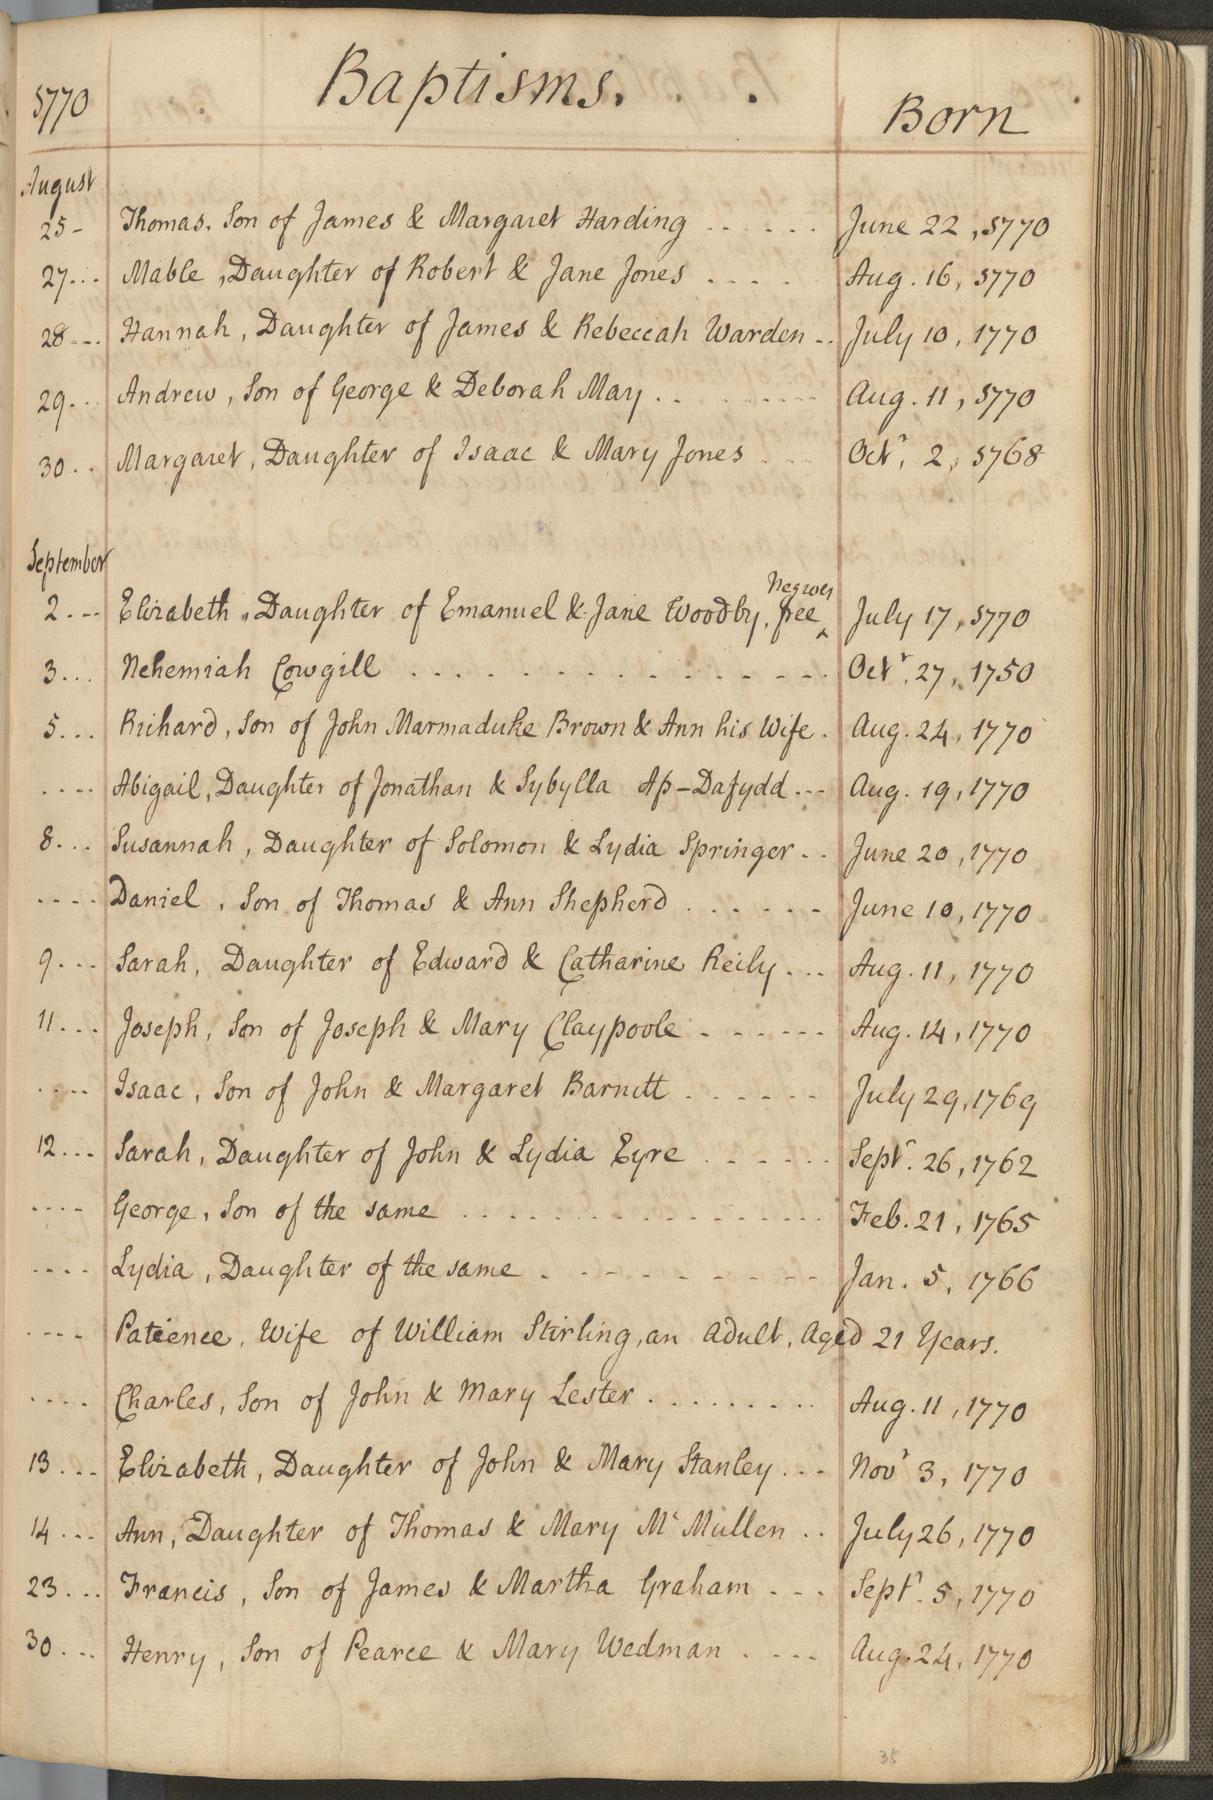 1770 Baptisms. Born
August
25- Thomas, Son of James & Margaret Harding . . . . . . June 22, 1770
27... Mable, Daughter of Robert & Jane Jones . . . . Aug. 16, 1770
28... Hannah, Daughter of James & Rebeccah Warden .. July 10, 1770
29... Andrew, Son of George & Deborah May . . . . . . . Aug. 11, 1770
30... Margaret, Daughter of Isaac & Mary Jones . . . Octr. 2, 1768
September
2.... Elizabeth, Daughter of Emanuel & Jane Woodby, free ^Negroes July 17, 1770
3... Nehemiah Cowgill . . . . . . . . . . . . . . . Octr. 27, 1750
5... Richard, Son of John Marmaduke Brown & Ann his Wife . Aug. 24, 1770
.... Abigail, Daughter of Jonathan & Sybylla Ap-Dafydd ... Aug. 19, 1770
8... Susannah, Daughter of Solomon & Lydia Springer .. June 20, 1770
.... Daniel, Son of Thomas & Ann Shepherd . . . . . . June 10, 1770
9.... Sarah, Daughter of Edward & Catharine Reily ... Aug. 11, 1770
11... Joseph, Son of Joseph & Mary Claypoole . . . . . . Aug. 14, 1770
.... Isaac, Son of John & Margaret Barnett . . . . . . July 29, 1769
12... Sarah, Daughter of John & Lydia Eyre . . . . . . Septr. 26, 1762
.... George, Son of the same . . . . . . . . . . . . . . . . Feb. 21, 1765
.... Lydia, Daughter of the same . . . . . . . . . . Jan. 5, 1766
.... Patience, Wife of William Stirling, an Adult, Aged 21 Years.
.... Charles, Son of John & Mary Lester . . . . . . . . Aug. 11, 1770
13... Elizabeth, Daughter of John & Mary Stanley ... Novr 3, 1770
14... Ann, Daughter of Thomas & Mary McMullen .. July 26, 1770
23... Francis, Son of James & Martha Graham ... Septr. 5, 1770
30... Henry, Son of Pearce & Mary Wedman . . . . Aug. 24, 1770
35